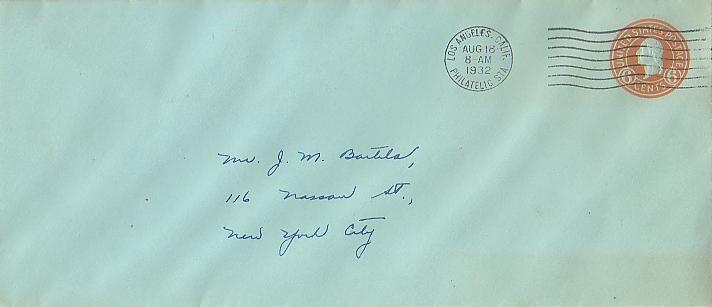 LOS ANGELES, CALIF.
AUG 18
8-AM
1932
PHILATELIC STA.
UNITED STATES POSTAGE
6 6
CENTS
Mr. J. M. Bartels,
116 Nassau St.,
New York City